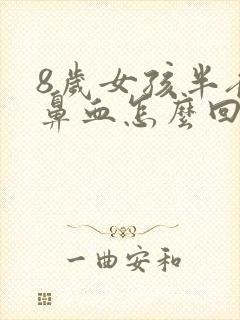 8歲女孩半
鼻血怎麼回
一曲安和